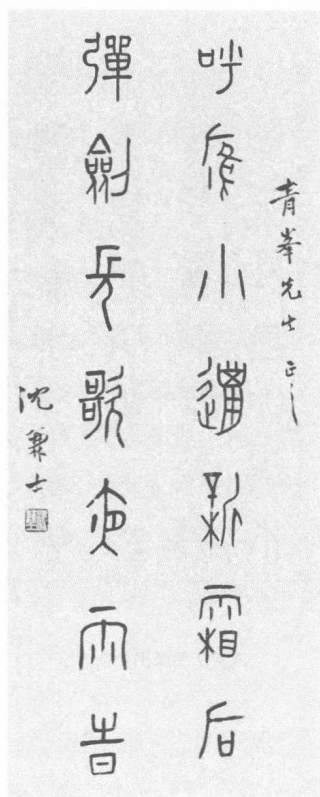 青峯先生正之
呼䧹小邋新霜后
彈劍長歌夜雨旹
沈兼士